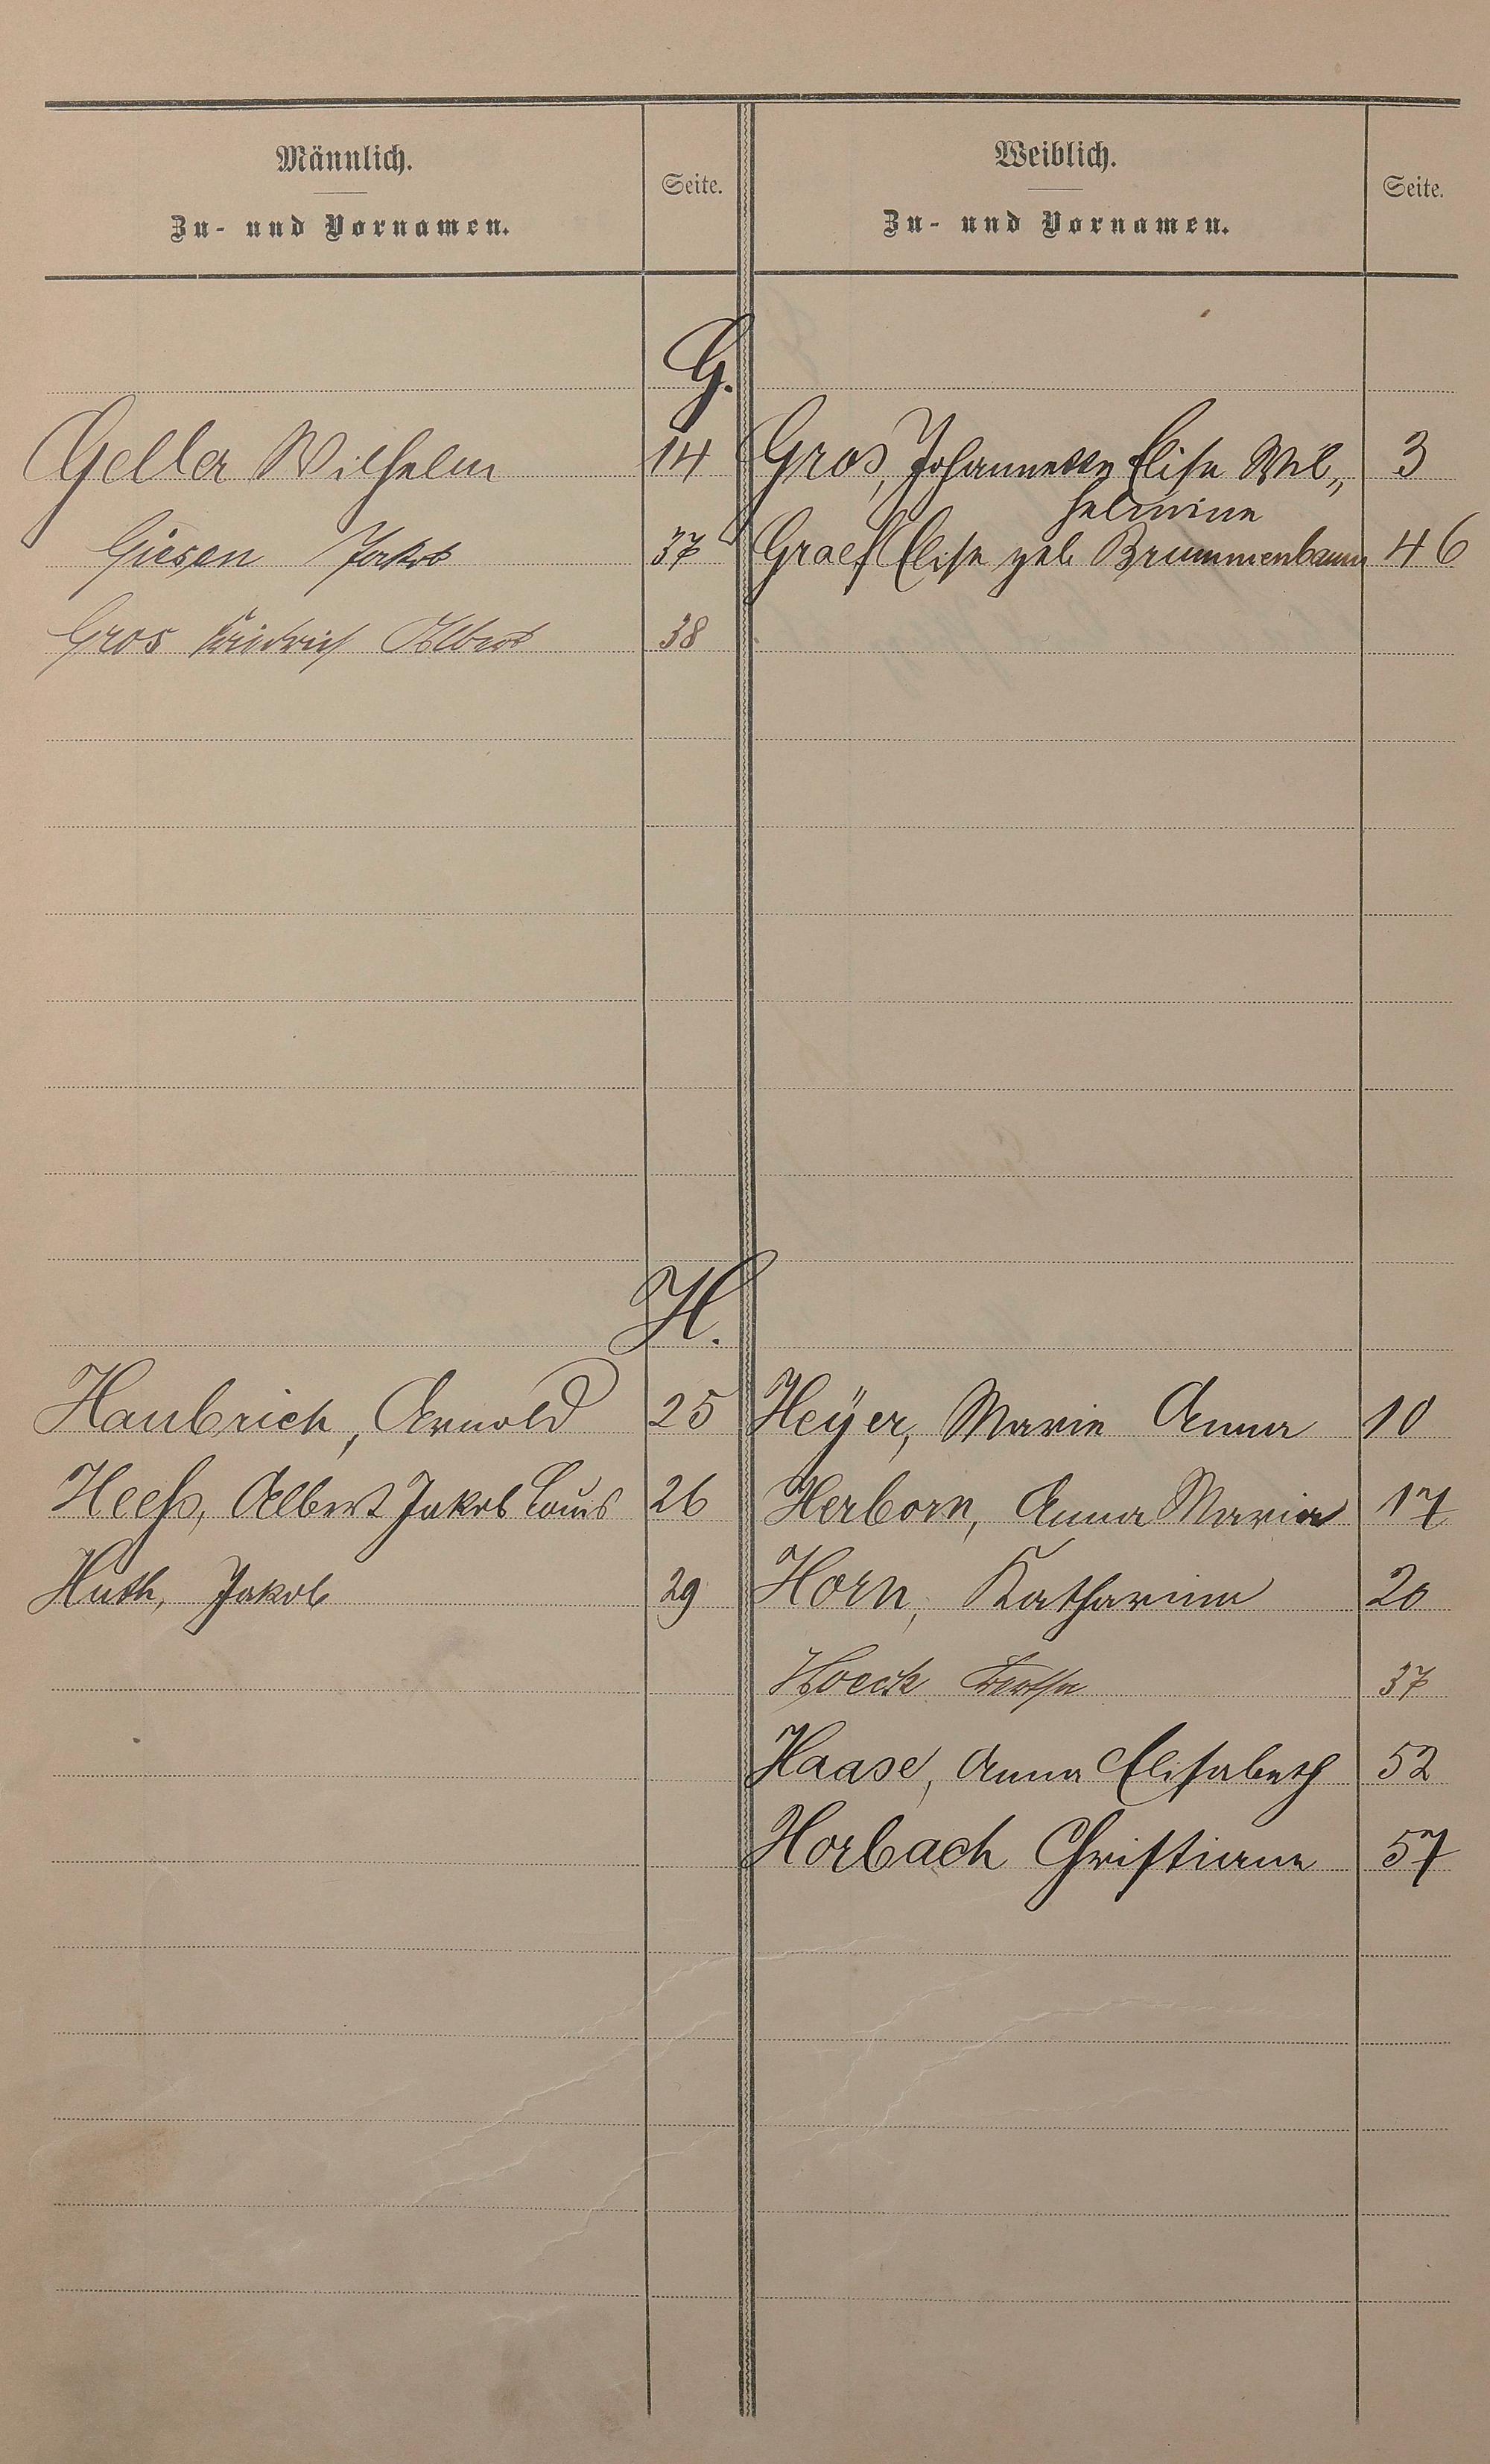 Männlich.
Zu- und Vornamen.
Seite.
Weiblich.
Zu- und Vornamen.
Seite.
G.
Geller Wilhelm 14 Gros, Johannette Elise Wil„ 3
helmine
Giesen Jakob 37 Graef Elise geb. Brummenbaum 46
Gros Friedrich Albert 38
H.
Haubrich, Arnold 25 Heÿer, Marie Anna 10
Heeß, Albert Jakob Louis 26 Herborn, Anna Maria 17
Huth, Jakob 29 Horn, Katharina 20
Hoeck Bertha 37
Haase, Anna Elisabeth 52
Horbach Christiane 57